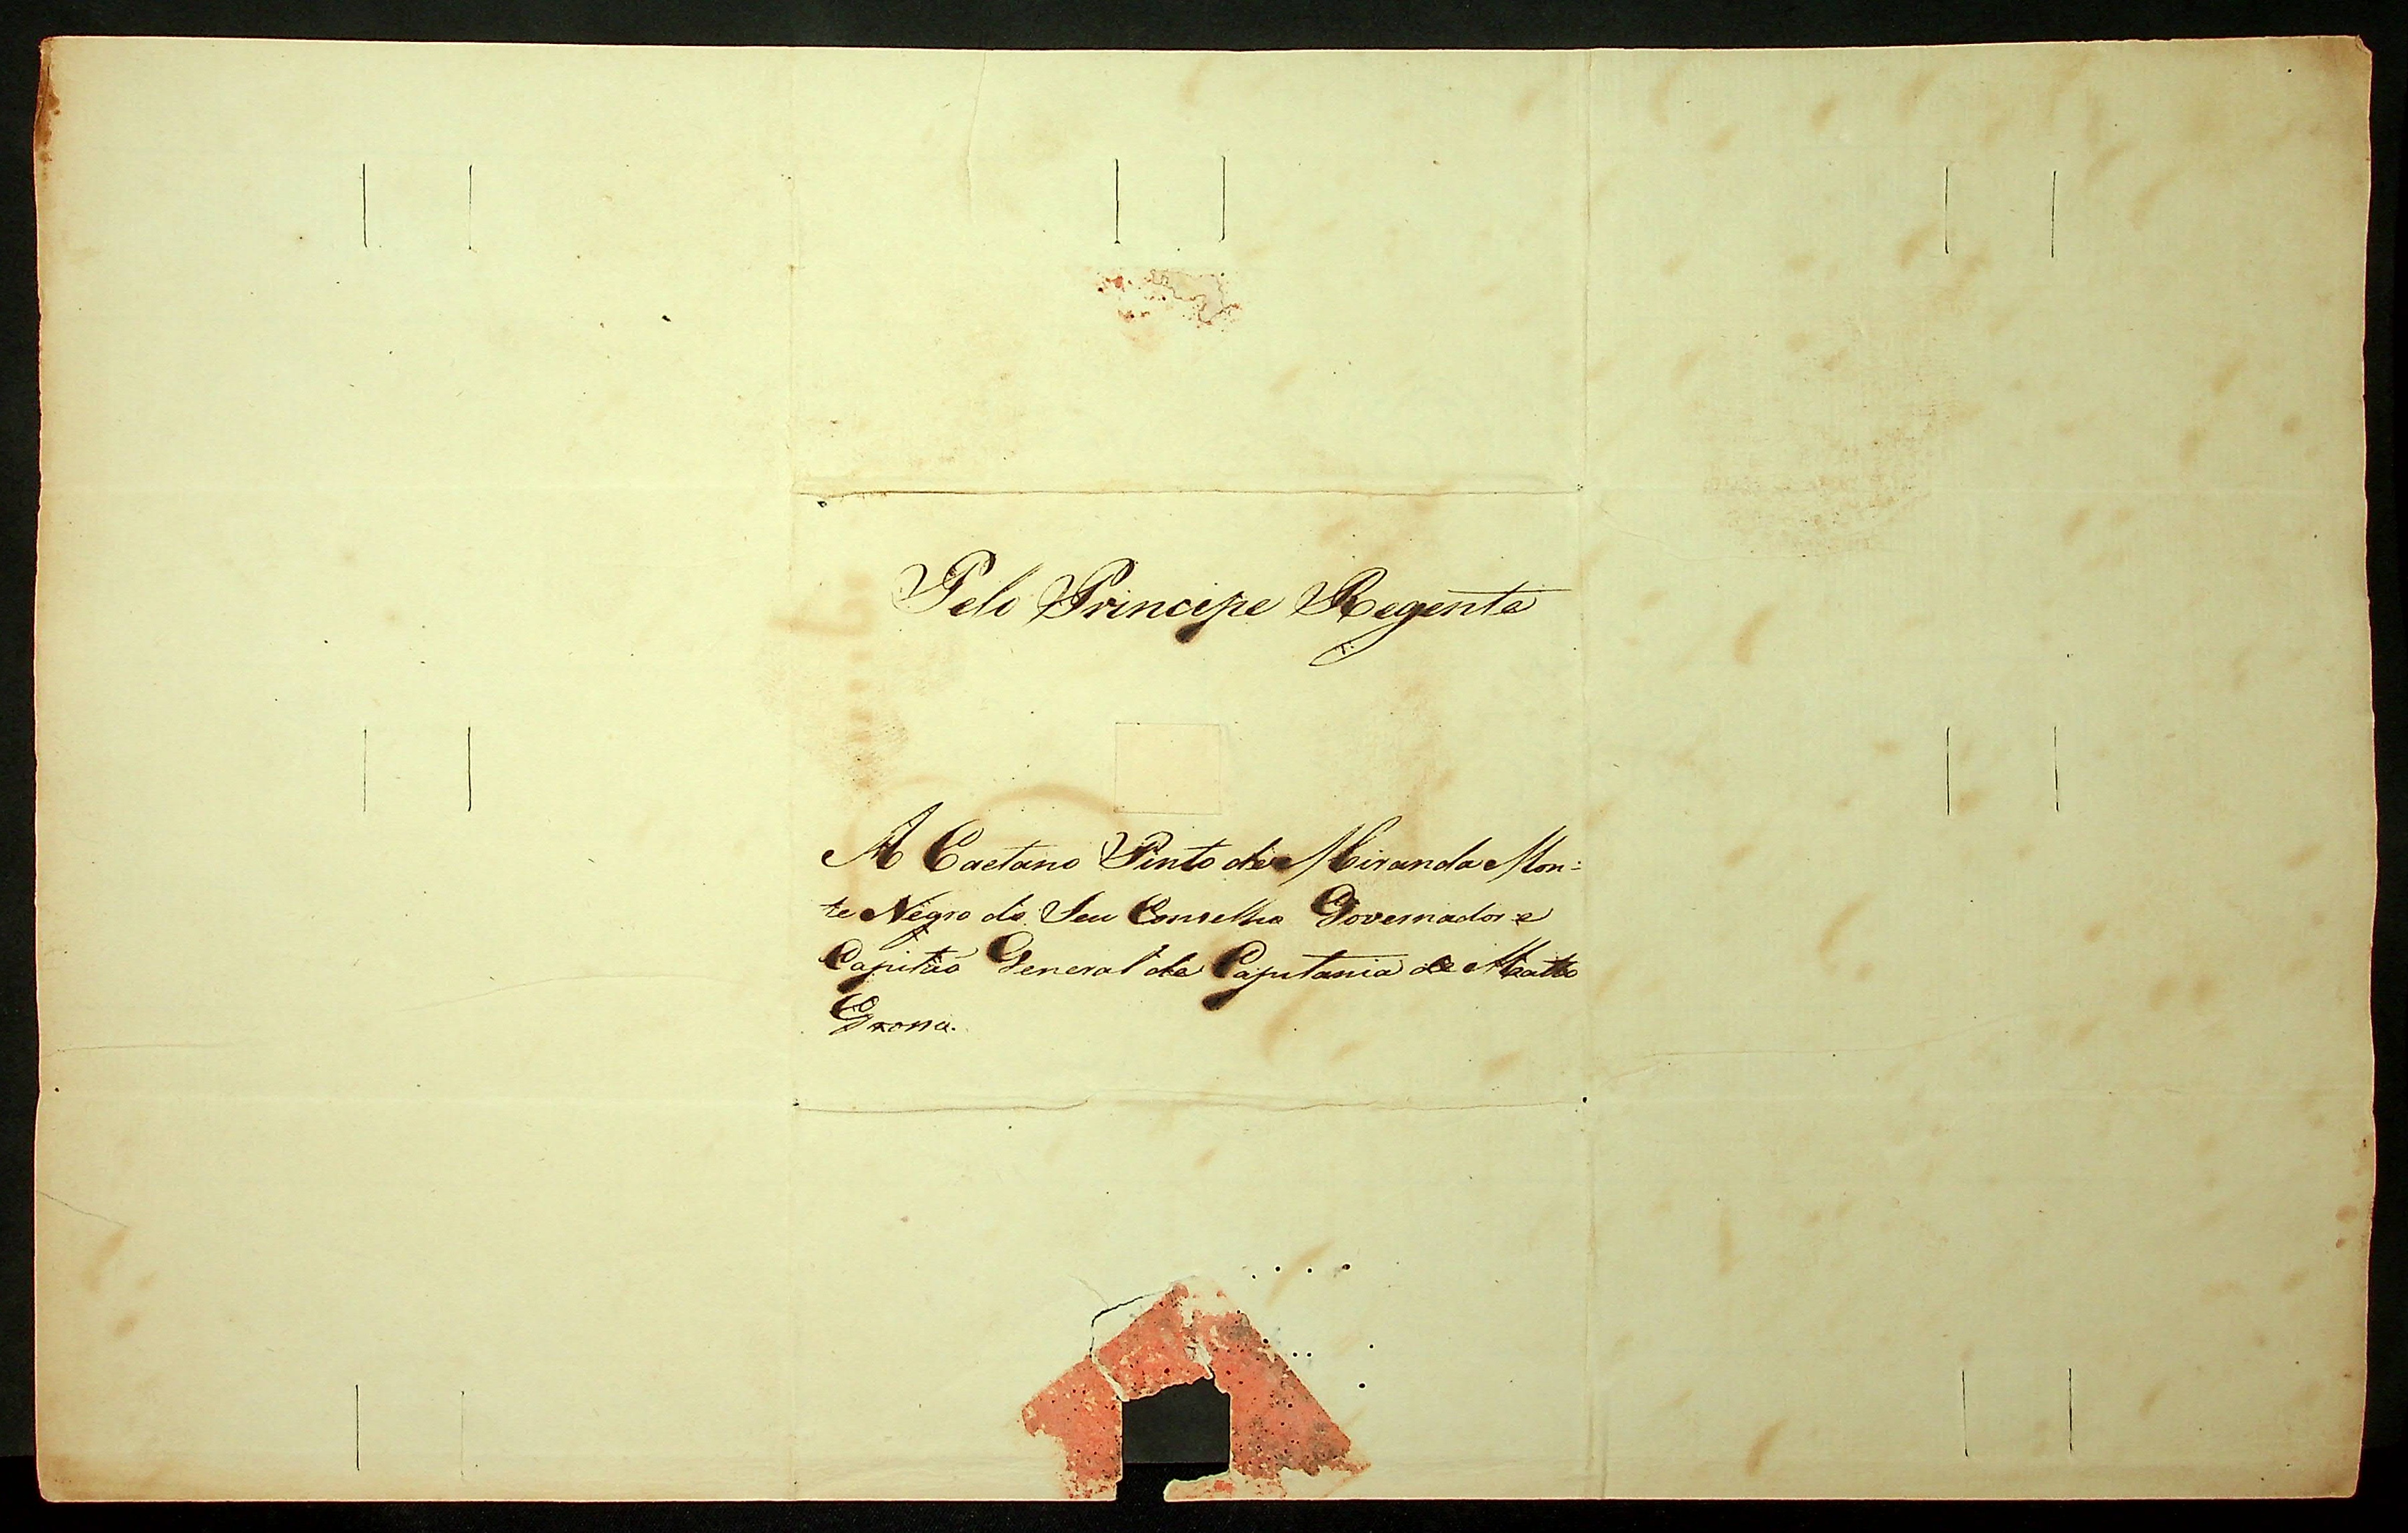 Pelo Principe Regente
A Caetano Pinto de Miranda Mon:
te Negro do Seu Conselho Governador e
Capitaõ General da Capitania de Matto
Grosso.